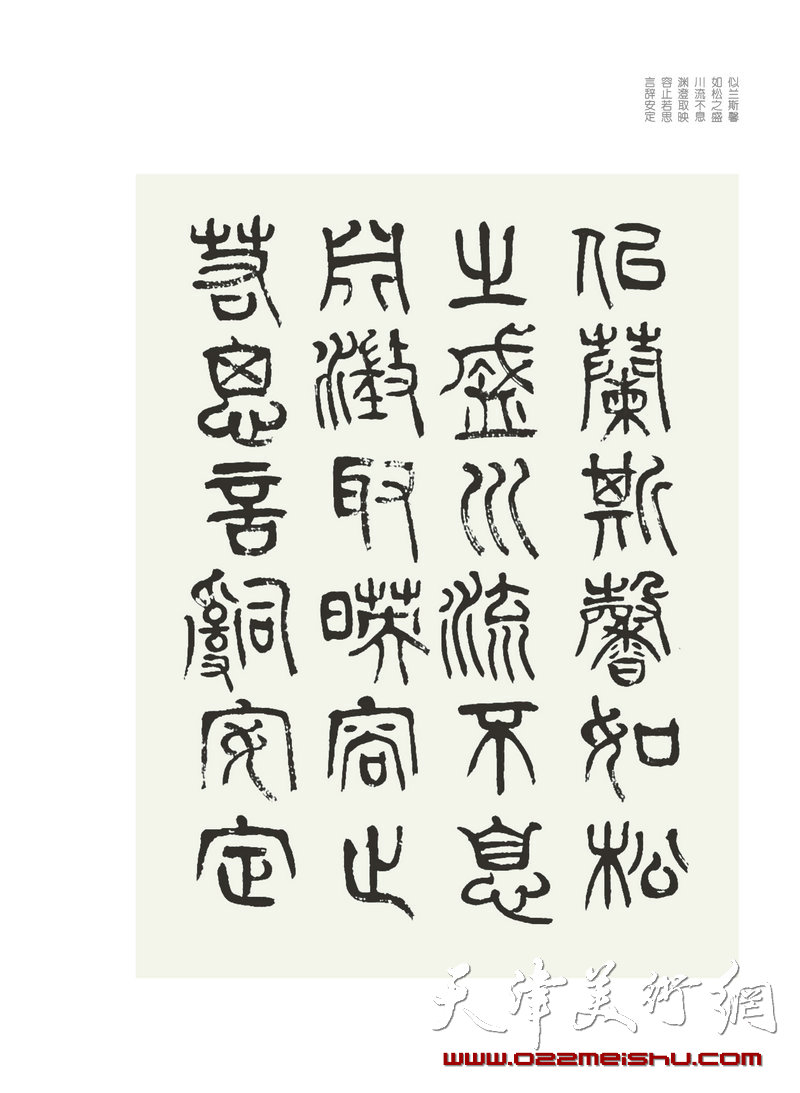 似兰斯馨
如松之盛
川流不息
渊澄取映
容止若思
言辞安定
佀蘭斯馨如松
之盛川流不息
𣶒澂取暎容止
若思言辭安定
天津美術網
www.022meishu.com